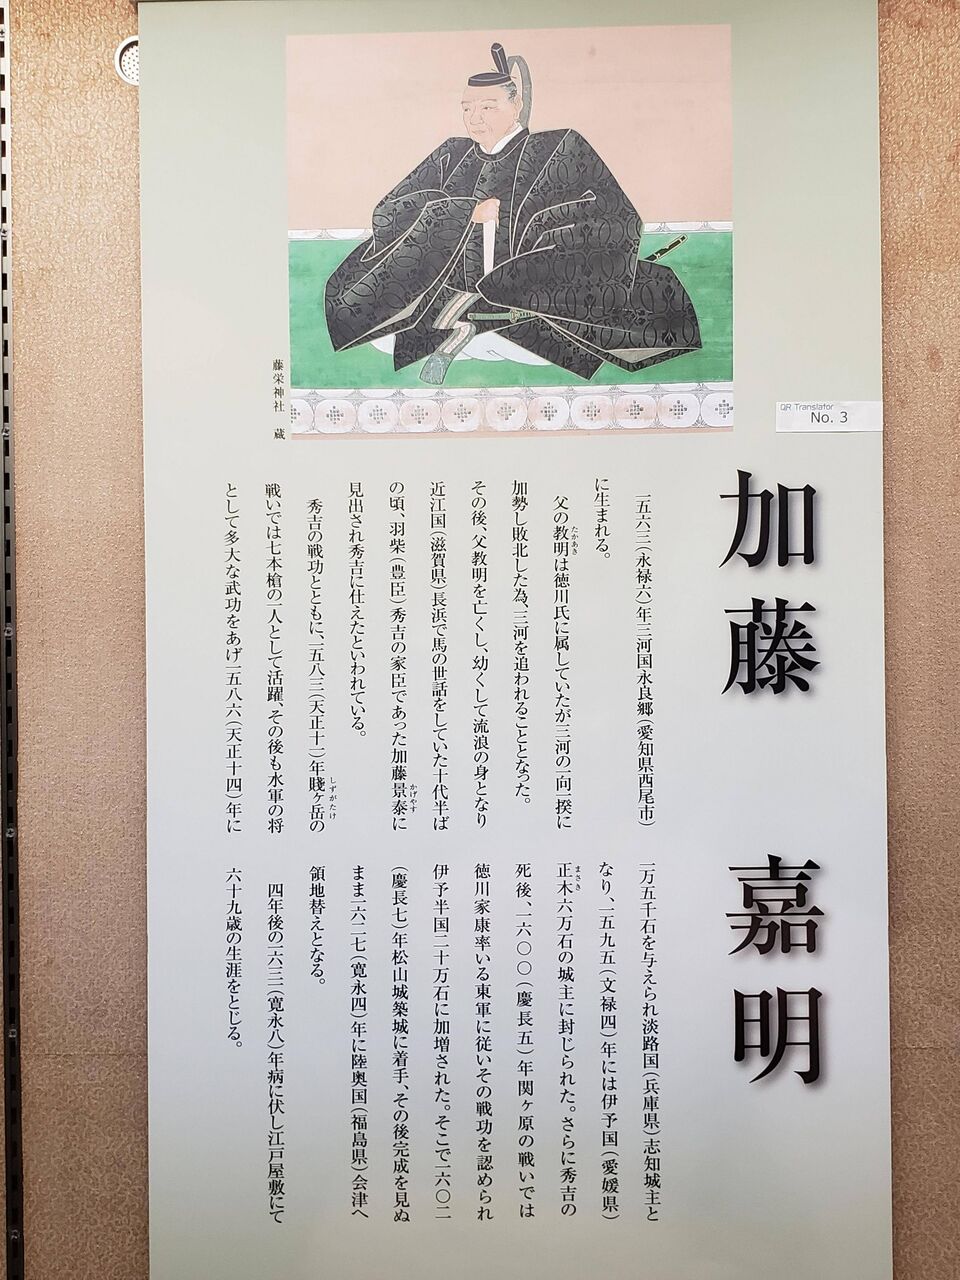 加藤 嘉明
QR Translator
No. 3
藤栄神社 蔵
一五六三(永禄六)年三河国永良郷(愛知県西尾市)
に生まれる。
父の教明は徳川氏に属していたが三河の一向一揆に
たかあき
加勢し敗北した為、三河を追われることとなった。
その後、父教明を亡くし、幼くして流浪の身となり
近江国(滋賀県)長浜で馬の世話をしていた十代半ば
の頃、羽柴(豊臣)秀吉の家臣であった加藤景泰に
かげやす
見出され秀吉に仕えたといわれている。
秀吉の戦功とともに、一五八三(天正十一)年賤ヶ岳の
しずがたけ
戦いでは七本槍の一人として活躍、その後も水軍の将
として多大な武功をあげ一五八六(天正十四)年に
一万五千石を与えられ淡路国(兵庫県)志知城主と
なり、一五九五(文禄四)年には伊予国(愛媛県)
正木六万石の城主に封じられた。さらに秀吉の
まさき
死後、一六〇〇(慶長五)年関ヶ原の戦いでは
徳川家康率いる東軍に従いその戦功を認められ
伊予半国二十万石に加増された。そこで一六〇二
(慶長七)年松山城築城に着手、その後完成を見ぬ
まま一六二七(寛永四)年に陸奥国(福島県)会津へ
領地替えとなる。
四年後の一六三一(寛永八)年病に伏し江戸屋敷にて
六十九歳の生涯をとじる。